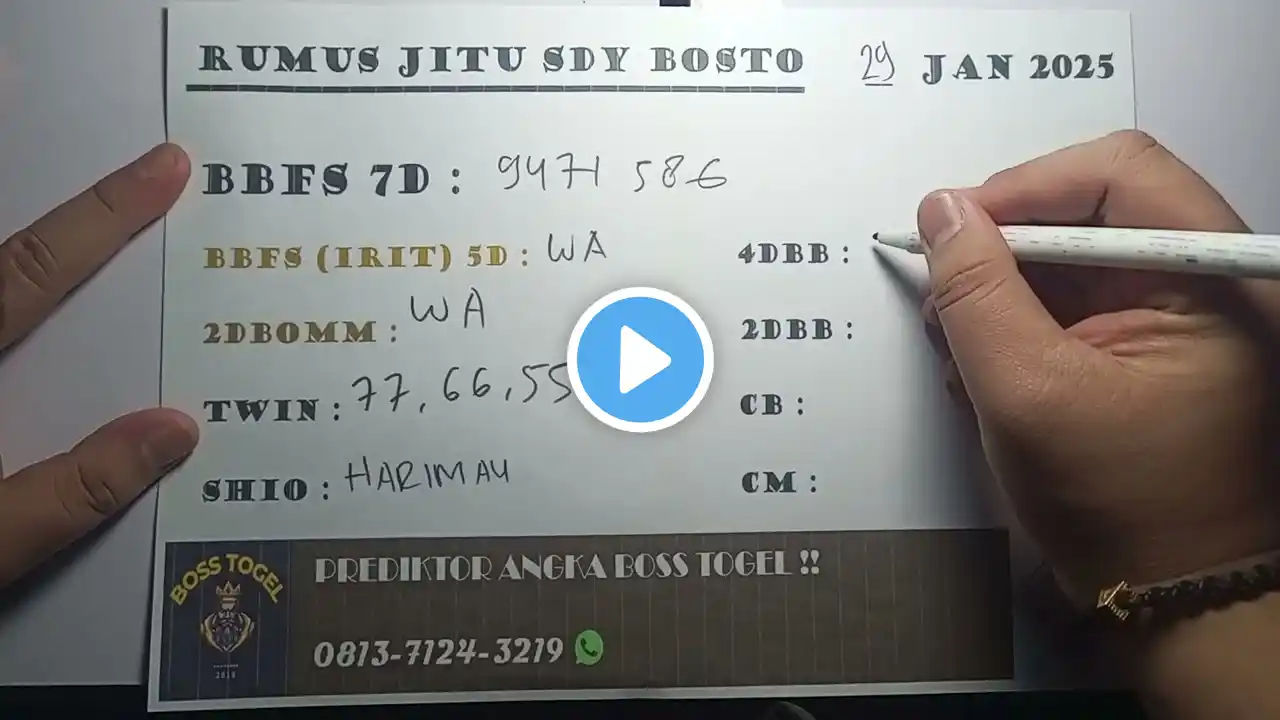 RUMUS JITU SDY BOSTO 29 JAN 2025
BBFS 7D : 9471 586
BBFS (IRIT) 5D : WA
4DBB :
2DBOMM : WA
2DBB :
TWIN : 77, 66, 55
CB :
SHIO : HARIMAU
CM :
BOSS TOGEL
2018
PREDIKTOR ANGKA BOSS TOGEL !!
0813-7124-3219